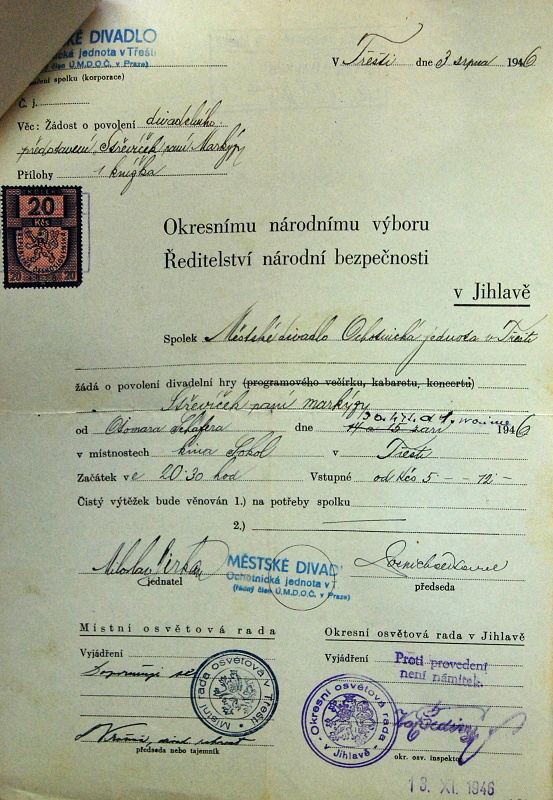 KÉ DIVADLO
ická jednota v Třešti
člen Ú.M.D.O.Č. v Praze)
spolku (korporace)
V Třešti dne 3 srpna 1946
Č. j.
Věc: Žádost o povolení divadelního
představení „Střevíček paní Markýzy
Přílohy 1 knížka
20
Kčs
20 20
Okresnímu národnímu výboru
Ředitelství národní bezpečnosti
v Jihlavě
Spolek Městské divadlo Ochotnická jednota v Třešti
žádá o povolení divadelní hry (programového večírku, kabaretu, koncertu)
Střevíček paní markýzy
od Otomara Schäfera dne 14 a 15 září 1946
v místnostech kina Sokol v Třešti
Začátek ve 20·30 hod Vstupné od Kčs 5 – – 12 –
Čistý výtěžek bude věnován 1.) na potřeby spolku
2.)
Miloslav
jednatel
MĚSTSKÉ DIVAD
Ochotnická jednota v T
(řádný člen Ú.M.D.O.Č. v Praze)
předseda
Místní osvětová rada
Vyjádření
Doporučuje se
Místní rada osvětová v Třešti
předseda nebo tajemník
Okresní osvětová rada v Jihlavě
Vyjádření Proti provedení
není námitek.
Okresní osvětová rada
v Jihlavě
okr. osv. inspektor
13. XI. 1946